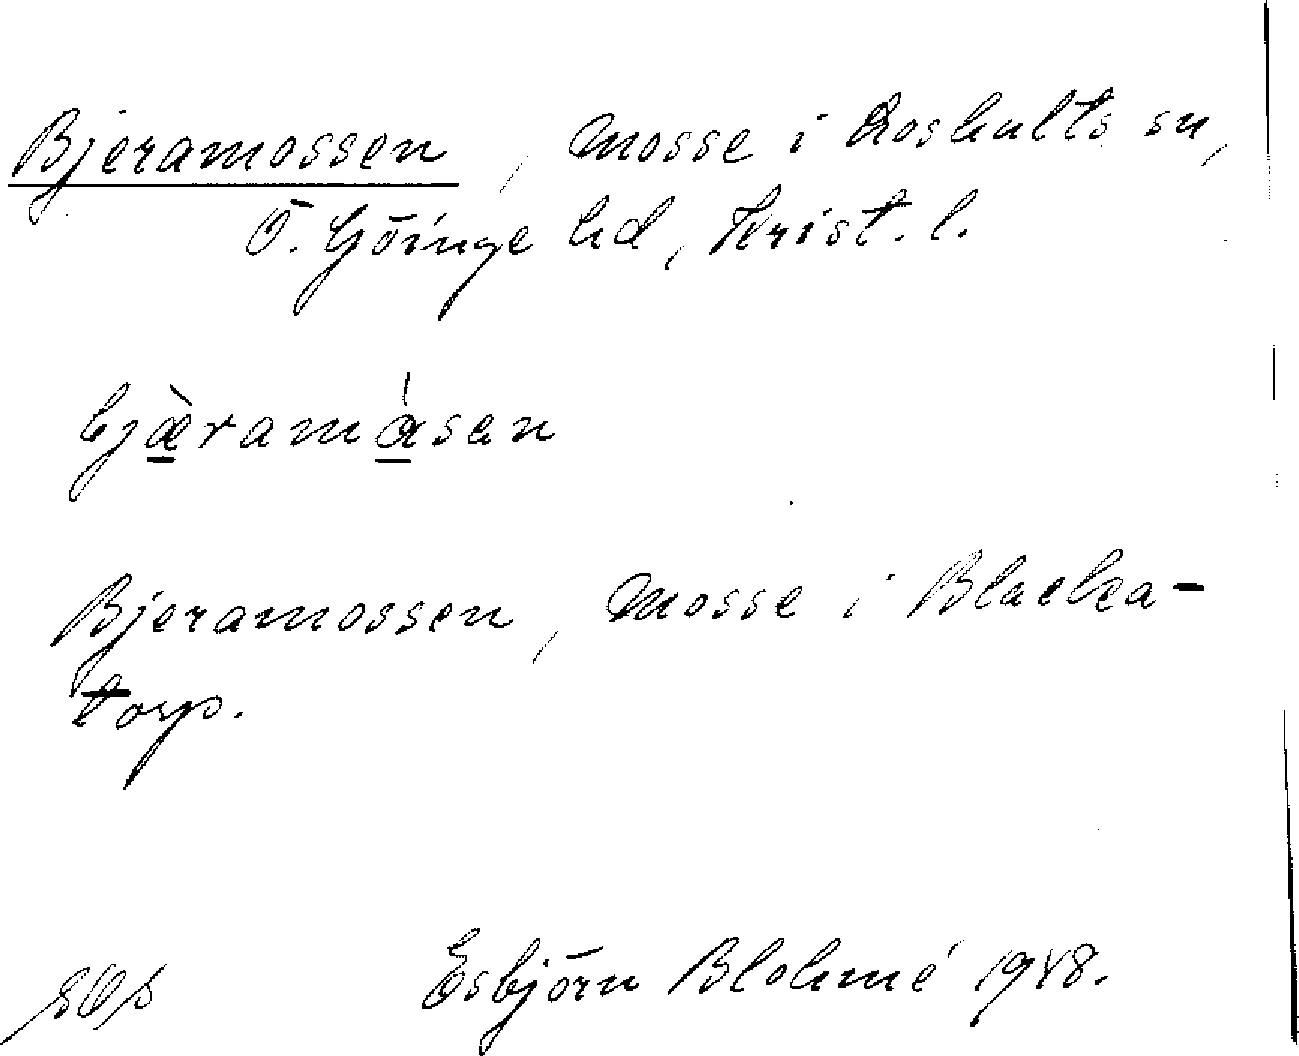 Bjeramossen, mosse i Loshults sn,
Ö. Göinge hd, Krist. l.
bjæ̀ramåsen
Bjeramossen, mosse i Blacka-
torp.
Esbjörn Blohmé 1948.